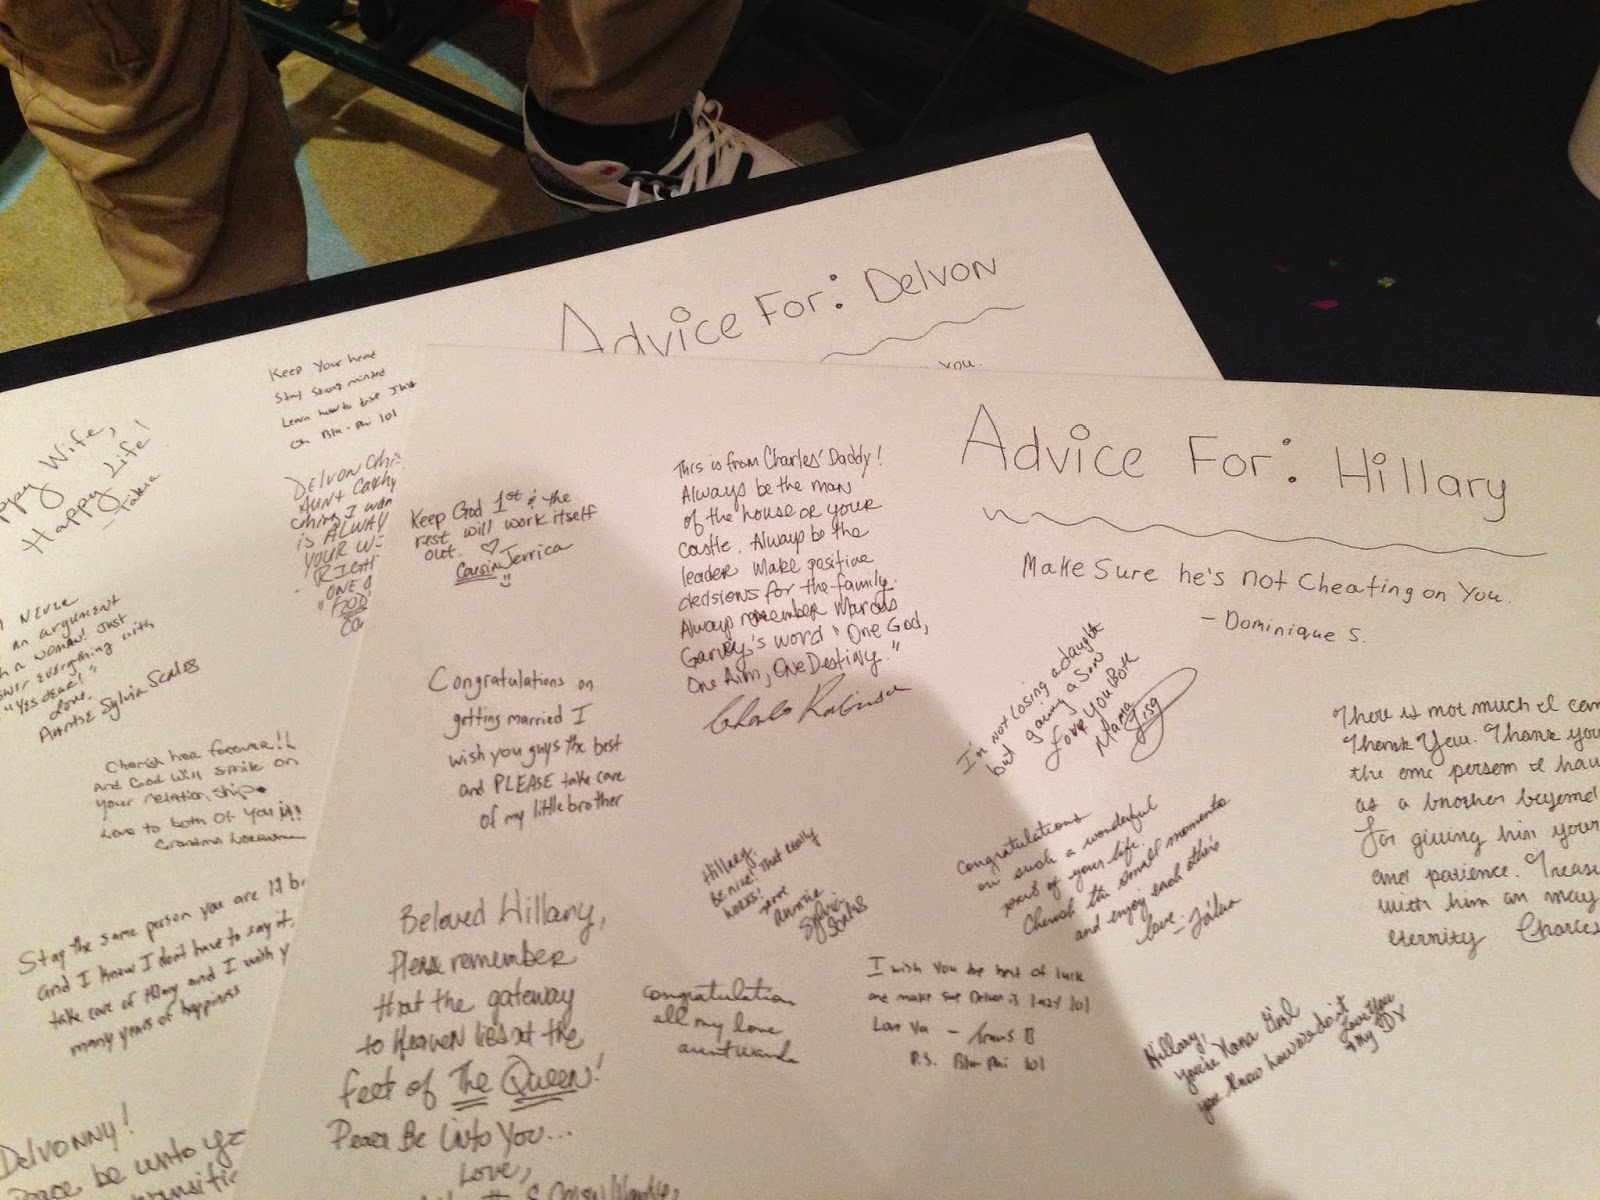 Advice For: Delvon
you.
Keep your head
Stay strong minded
Learn how to
On Blu-Phi lol
Happy Wife,
Happy Life!
DELVON
AUNT CATHY
I
is ALWAY
YOUR
RIGHT
"ONE
GOD
NEVER
an argument
woman! Just
everything with
"Yes dear!"
Love,
Auntie Sylvia Scales
Cherish her forever!!
and God will smile on
your relationship.
Love to both of you
Grandma
Stay the same person you are
and I know I don't have to say it,
take care of and I wish y
many years of happiness
Delvonny!
Peace be unto
Advice For: Hillary
Make Sure he's not Cheating on You.
- Dominique S.
Keep God 1st & the
rest will work itself
out. ♡
Cousin Jerrica
This is from Charles' Daddy!
Always be the man
of the house or your
castle. Always be the
leader. Make positive
decisions for the family.
Always remember Marcus
Garvey's word "One God,
One Aim, One Destiny."
Congratulations on
getting married I
wish you guys the best
and PLEASE take care
of my little brother
I'm not losing a daught
but gaining a Son
Love You Both
Mama
There is not much I can
Thank You. Thank you
the one person I hav
as a brother beyond
For giving him your
and patience. Treasu
with him an may
eternity Charles
Hillary,
be nice! That really
works!
Auntie
Sylvia
Scales
Congratulations
on such a wonderful
part of your life.
Cherish the small moments
and enjoy each other's
love -
Beloved Hillary,
Please remember
that the gateway
to Heaven lies at the
feet of The Queen!
Peace Be Unto You...
Love,
Congratulation
all my love
I wish you the best of luck
make sure Delvon is lazy lol
Love Ya -
P.S. Blu Phi lol
Hillary,
you're Nana Girl
you know how we do it
Love you